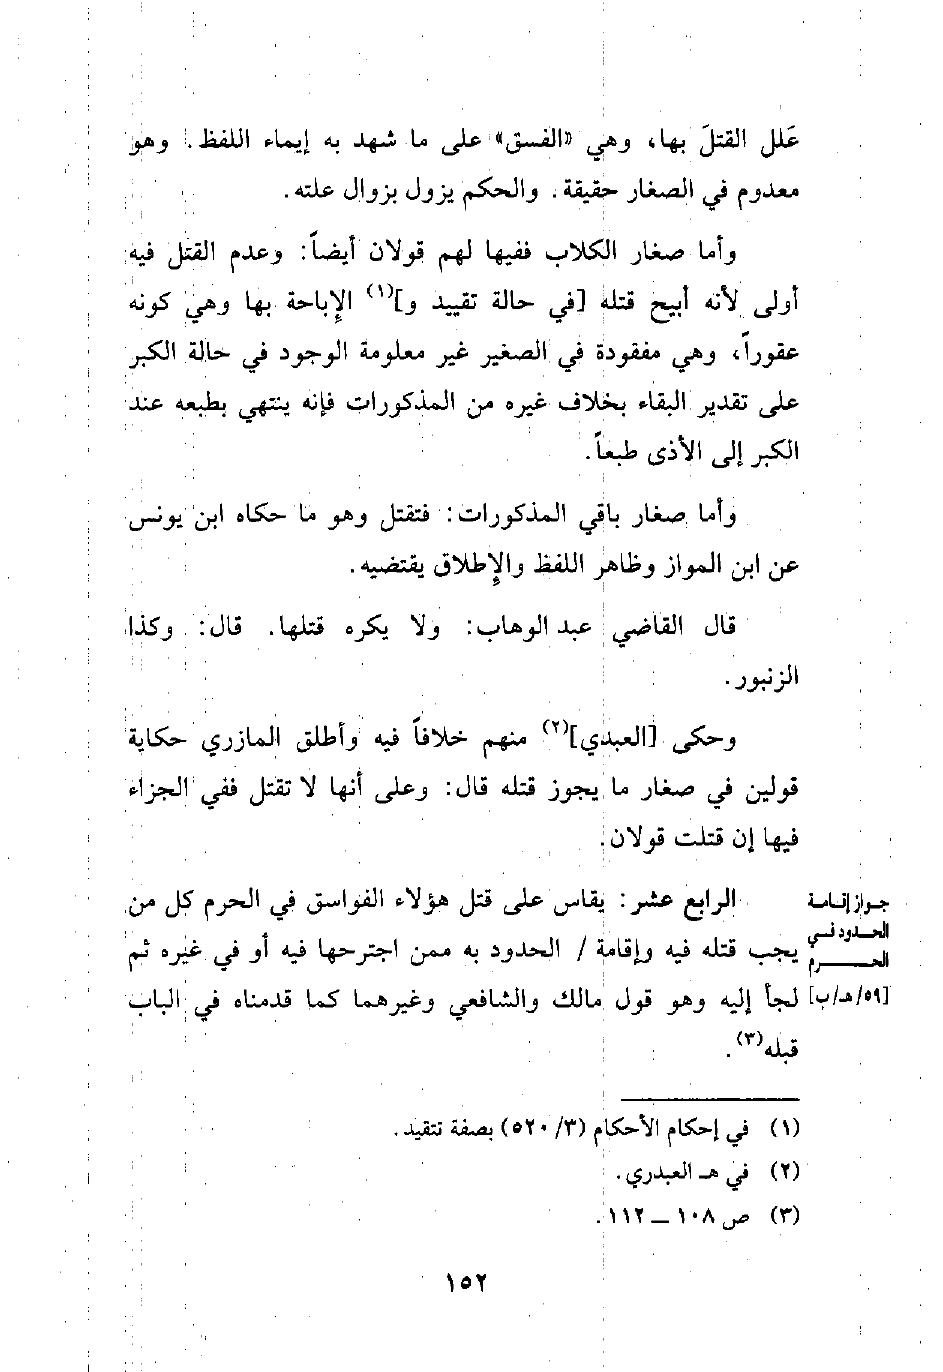 عَلل القتلَ بها، وهي «الفسق» على ما شهد به إيماء اللفظ. وهو
معدوم في الصغار حقيقة. والحكم يزول بزوال علته.
وأما صغار الكلاب ففيها لهم قولان أيضاً: وعدم القتل فيه
أولى لأنه أبيح قتله [في حالة تقييد و](١) الإباحة بها وهي كونه
عقوراً، وهي مفقودة في الصغير غير معلومة الوجود في حالة الكبر
على تقدير البقاء بخلاف غيره من المذكورات فإنه ينتهي بطبعه عند
الكبر إلى الأذى طبعاً.
وأما صغار باقي المذكورات: فتقتل وهو ما حكاه ابن يونس
عن ابن المواز وظاهر اللفظ والإطلاق يقتضيه.
قال القاضي عبد الوهاب: ولا يكره قتلها. قال: وكذا
الزنبور.
وحكى [العبدي](٢) منهم خلافاً فيه وأطلق المازري حكاية
قولين في صغار ما يجوز قتله قال: وعلى أنها لا تقتل ففي الجزاء
فيها إن قتلت قولان.
الرابع عشر: يقاس على قتل هؤلاء الفواسق في الحرم كل من
يجب قتله فيه وإقامة / الحدود به ممن اجترحها فيه أو في غيره ثم
لجأ إليه وهو قول مالك والشافعي وغيرهما كما قدمناه في الباب
قبله(٣).
جواز إقامة
الحدود في
الحرم
[٥٩/هـ/ب]
(١) في إحكام الأحكام (٣/٥٢٠) بصفة تتقيد.
(٢) في هـ العبدري.
(٣) ص ١٠٨ ــ ١١٢.
١٥٢